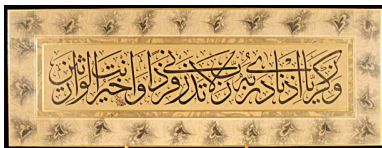 وزكريا اذ نادى ربه رب لا تذرني فردا وانت خير الوارثين